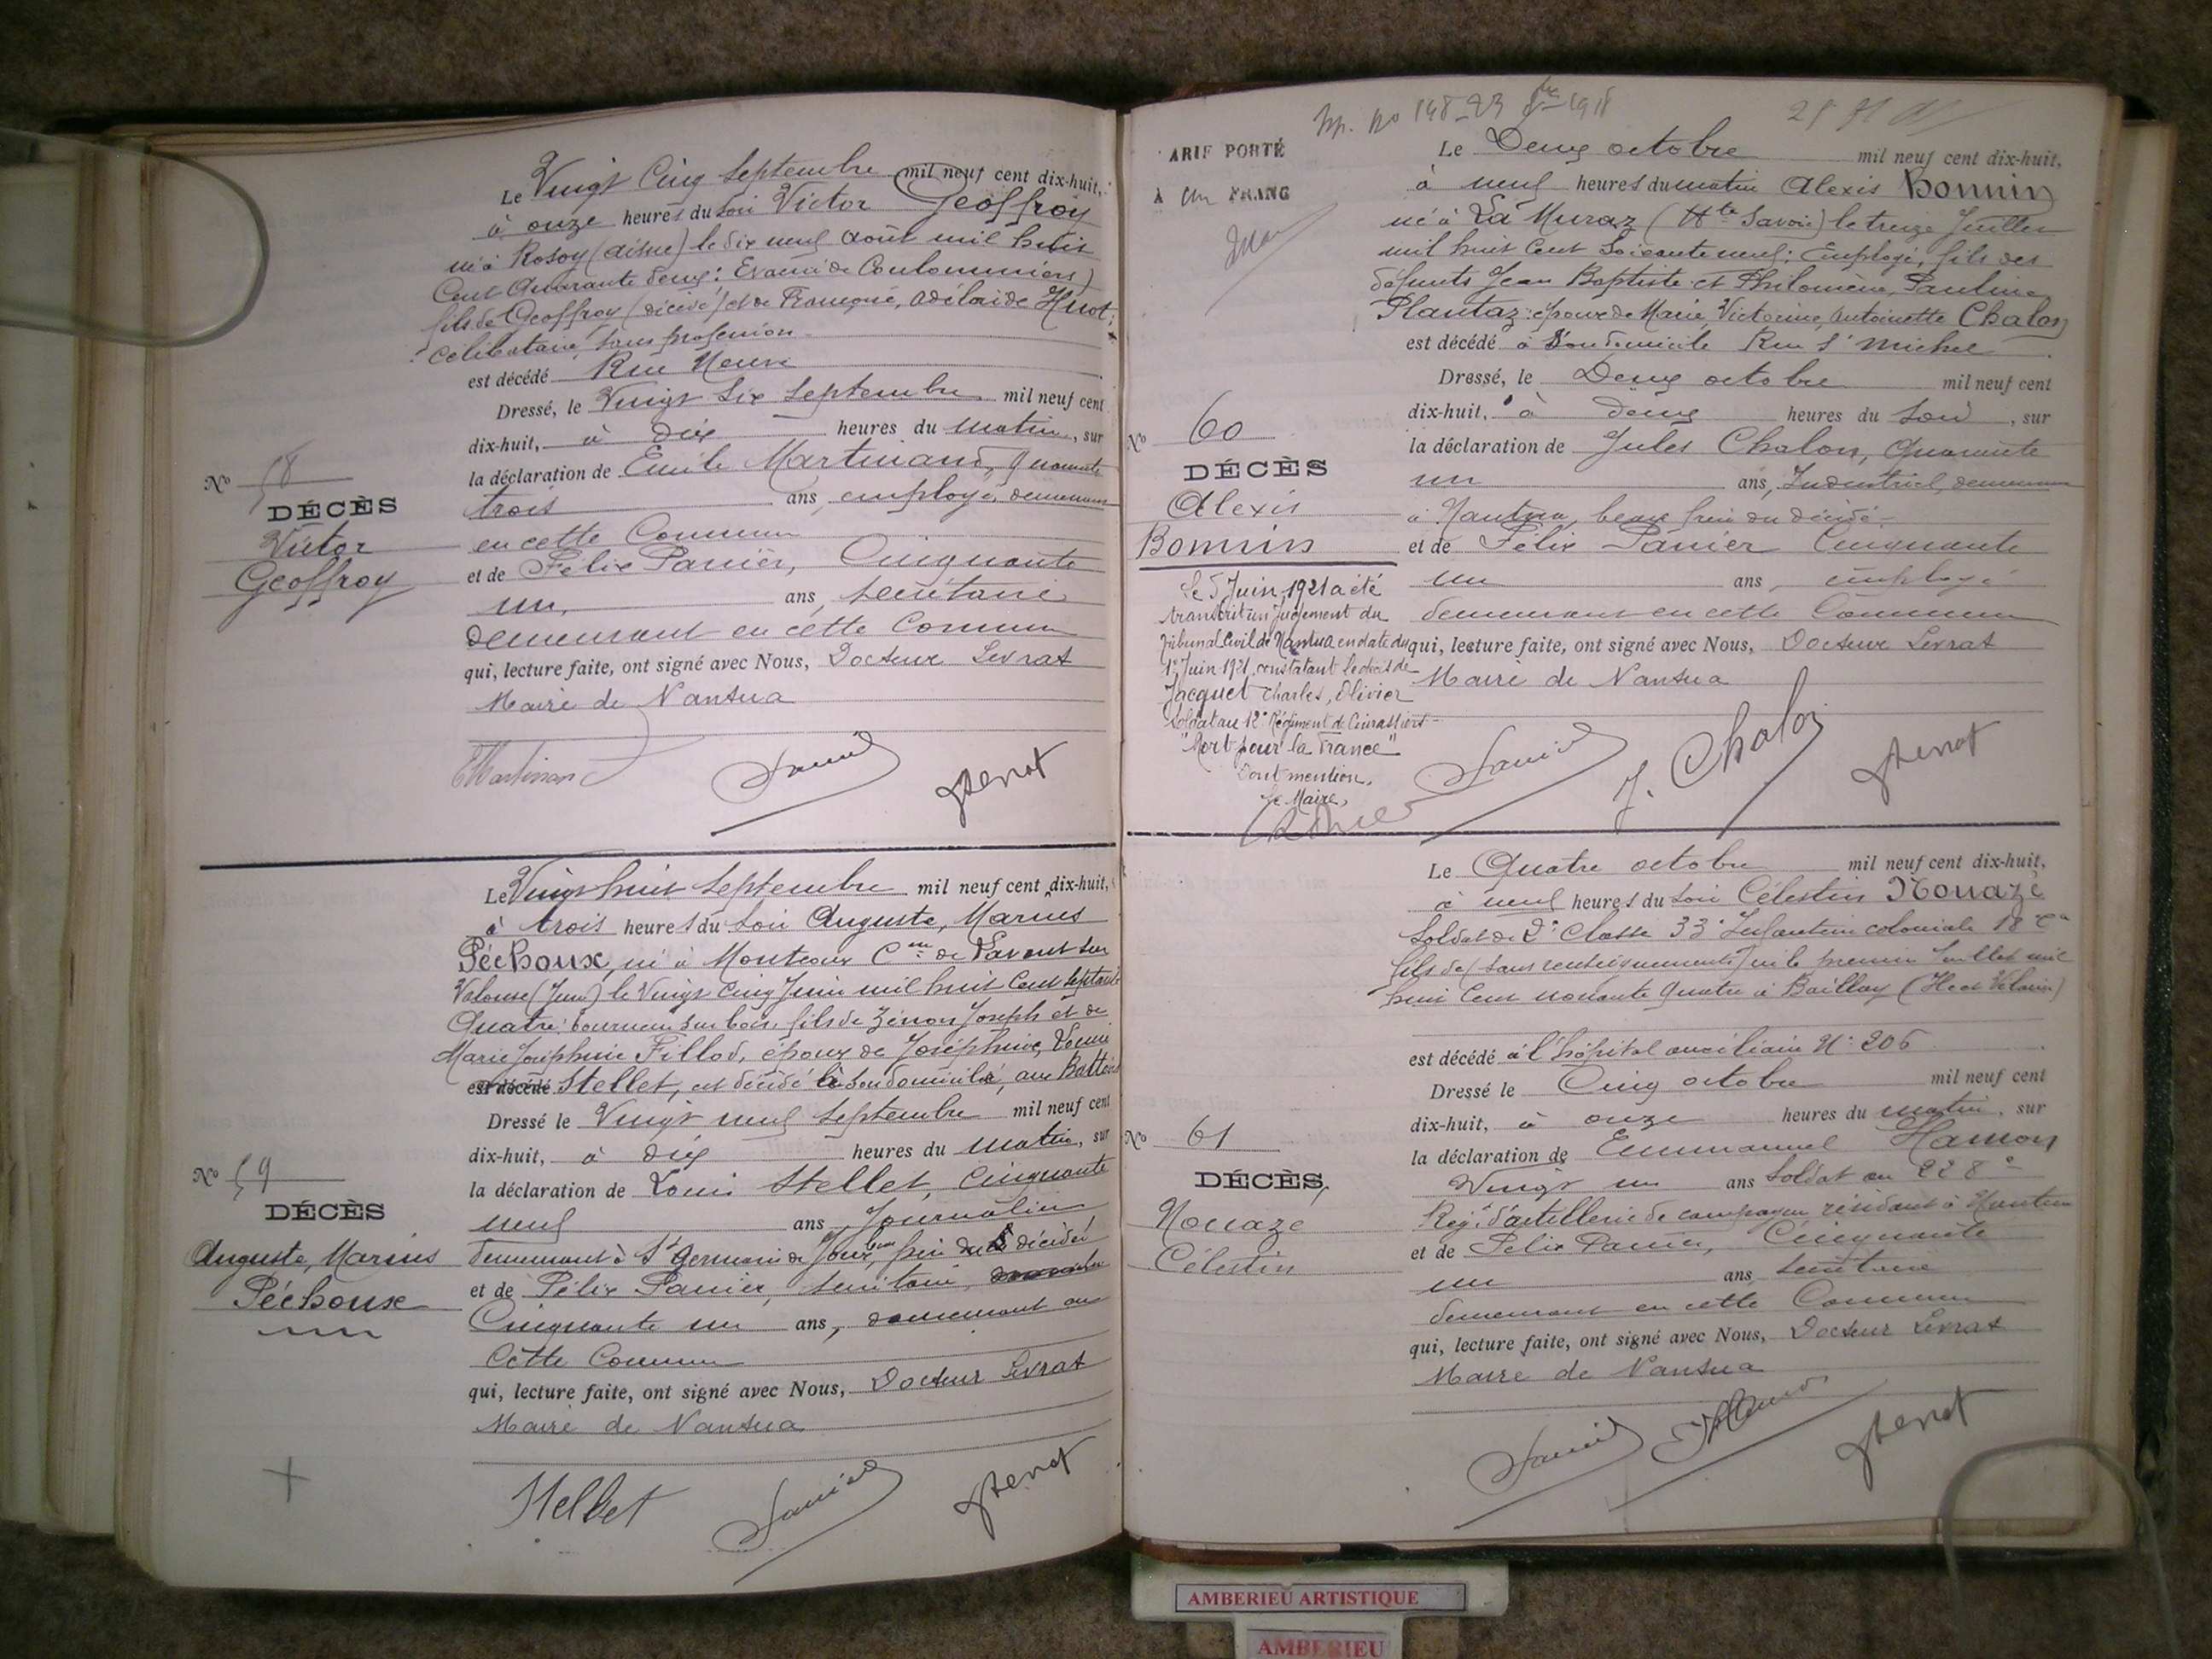 Le Vingt Cinq Septembre mil neuf cent dix-huit,
à onze heures du soir Victor Geoffroy
né à Rosoy (Aisne) le dix neuf août mil huit
Cent Quarante deux; Evacué de Coulommiers)
fils de Geoffroy (décédé) et de Françoise, Adélaide Huot;
Célibataire, sans profession
est décédé Rue Neuve
Dressé, le Vingt Six Septembre mil neuf cent
dix-huit, à dix heures du matin, sur
la déclaration de Emile Martinand, Quarante
trois ans, employé, demeurant
en cette Commune
et de Félix Panier, Cinquante
un, ans, secrétaire
demeurant en cette Commune
qui, lecture faite, ont signé avec Nous, Docteur Levrat
Maire de Nantua
No 58
DÉCÈS
Victor
Geoffroy
Le Vingt huit Septembre mil neuf cent dix-huit,
à trois heures du soir Auguste, Marius
Péchoux, né à Cne de
Valouse (Jura) le Vingt Cinq Juin mil huit Cent Septante
Quatre: tourneur sur bois, fils de Zénon Joseph et de
Marie Joséphine Fillod, époux de Joséphine,
est décédé Stellet, est décédé à son domicile, aux Battoirs
Dressé le Vingt neuf Septembre mil neuf cent
dix-huit, à dix heures du matin, sur
la déclaration de Louis Stellet, Cinquante
neuf ans, Journalier
demeurant à St Germain de Joux, beau frère du décédé
et de Félix Panier, secrétaire,
Cinquante un ans, demeurant en
Cette Commune
qui, lecture faite, ont signé avec Nous, Docteur Levrat
Maire de Nantua
No 59
DÉCÈS
Auguste, Marius
Péchoux
Stellet
ARIF PORTÉ
À Un FRANC
Le Deux octobre mil neuf cent dix-huit,
à neuf heures du matin Alexis Bonnin
né à La Muraz (Hte Savoie) le treize Juillet
mil huit Cent Soixante neuf; Employé, fils des
défunts Jean Baptiste et Philomène, Pauline
Plantaz: époux de Marie, Victorine, Antoinette Chalon
est décédé à Son domicile Rue St Michel
Dressé, le Deux octobre mil neuf cent
dix-huit, à deux heures du Soir, sur
la déclaration de Jules Chalon, Quarante
un ans, Industriel, demeurant
à Nantua, beau frère du décédé,
et de Félix Panier Cinquante
un ans, employé
demeurant en cette Commune
qui, lecture faite, ont signé avec Nous, Docteur Levrat
Maire de Nantua
No 60
DÉCÈS
Alexis
Bonnin
Le 5 Juin 1921 a été
transcrit un jugement du
Tribunal Civil de Nantua en date du
1er Juin 1921, constatant le décès de
Jacquet Charles, Olivier
Soldat au 12e Régiment de Cuirassiers
"Mort pour la France"
Dont mention,
Le Maire,
J. Chalon
Le Quatre octobre mil neuf cent dix-huit,
à neuf heures du soir Célestin Nouazé
Soldat de 2e Classe 33e Infanterie coloniale 18e Cie
fils de (sans renseignements) né le premier Juillet mil
huit Cent nonante Quatre à Baillay (Ile et Vilaine)
est décédé à l'hôpital auxiliaire No 206
Dressé le Cinq octobre mil neuf cent
dix-huit, à onze heures du matin, sur
la déclaration de Emmanuel Hamon
Vingt un ans Soldat au 228e
Regt d'artillerie de campagne résidant à Nantua
et de Félix Panier, Cinquante
un ans secrétaire
demeurant en cette Commune
qui, lecture faite, ont signé avec Nous, Docteur Levrat
Maire de Nantua
No 61
DÉCÈS
Nouazé
Célestin
AMBERIEU ARTISTIQUE
AMBERIEU